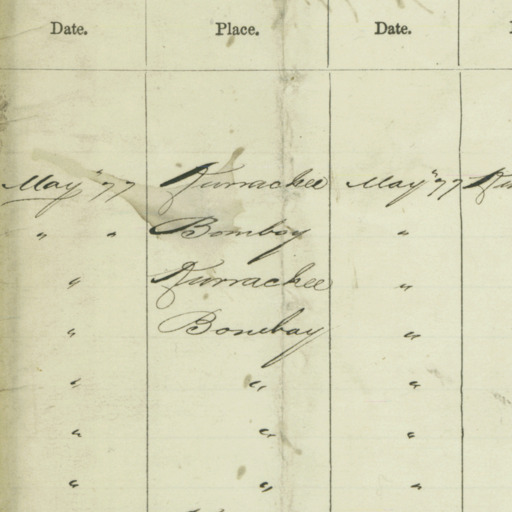 Date. Place. Date.
May "77 Kurrachee May "77
" " Bombay "
" Kurrachee "
" Bombay "
" " "
" " "
" " "